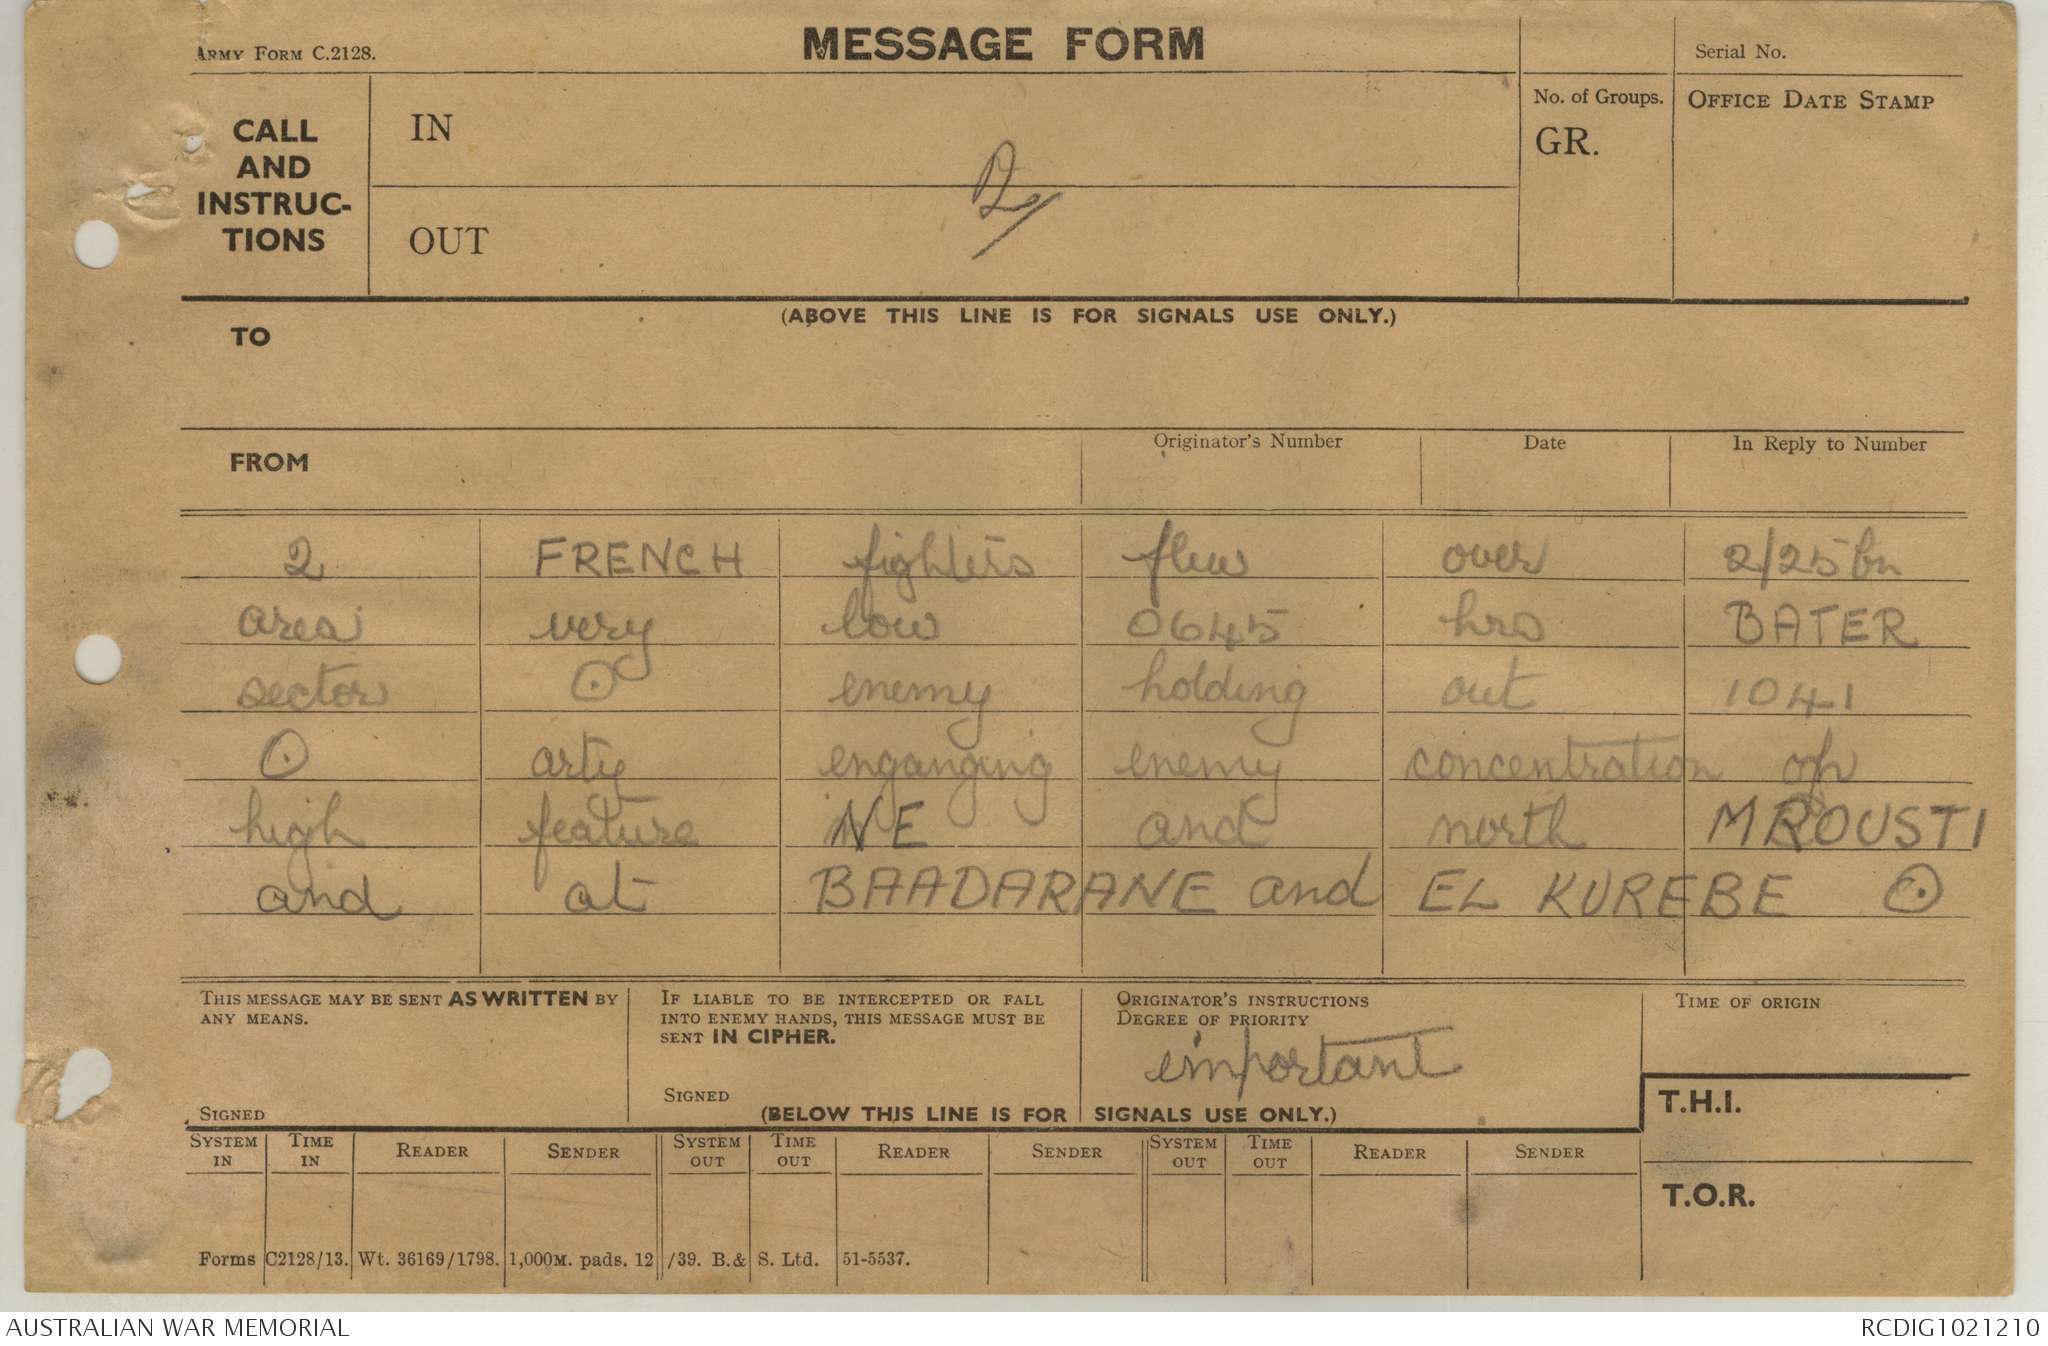 ARMY FORM C.2128.
MESSAGE FORM
Serial No.
CALL AND INSTRUC-TIONS
IN
OUT
No. of Groups.
GR.
OFFICE DATE STAMP
(ABOVE THIS LINE IS FOR SIGNALS USE ONLY.)
TO
FROM
Originator's Number
Date
In Reply to Number
2 FRENCH fighters flew over 2/25 bn
area very low 0645 hrs BATER
sector ⊙ enemy holding out 1041
⊙ arty enganging enemy concentration op
high feature NE and north MROUSTI
and at BAADARANE and EL KUREBE ⊙
THIS MESSAGE MAY BE SENT AS WRITTEN BY
ANY MEANS.
SIGNED
IF LIABLE TO BE INTERCEPTED OR FALL
INTO ENEMY HANDS, THIS MESSAGE MUST BE
SENT IN CIPHER.
SIGNED
ORIGINATOR'S INSTRUCTIONS
DEGREE OF PRIORITY
important
TIME OF ORIGIN
(BELOW THIS LINE IS FOR SIGNALS USE ONLY.)
T.H.I.
SYSTEM IN TIME IN READER SENDER SYSTEM OUT TIME OUT READER SENDER SYSTEM OUT TIME OUT READER SENDER
T.O.R.
Forms C2128/13. Wt. 36169/1798. 1,000M. pads. 12/39. B.& S. Ltd. 51-5537.
AUSTRALIAN WAR MEMORIAL
RCDIG1021210